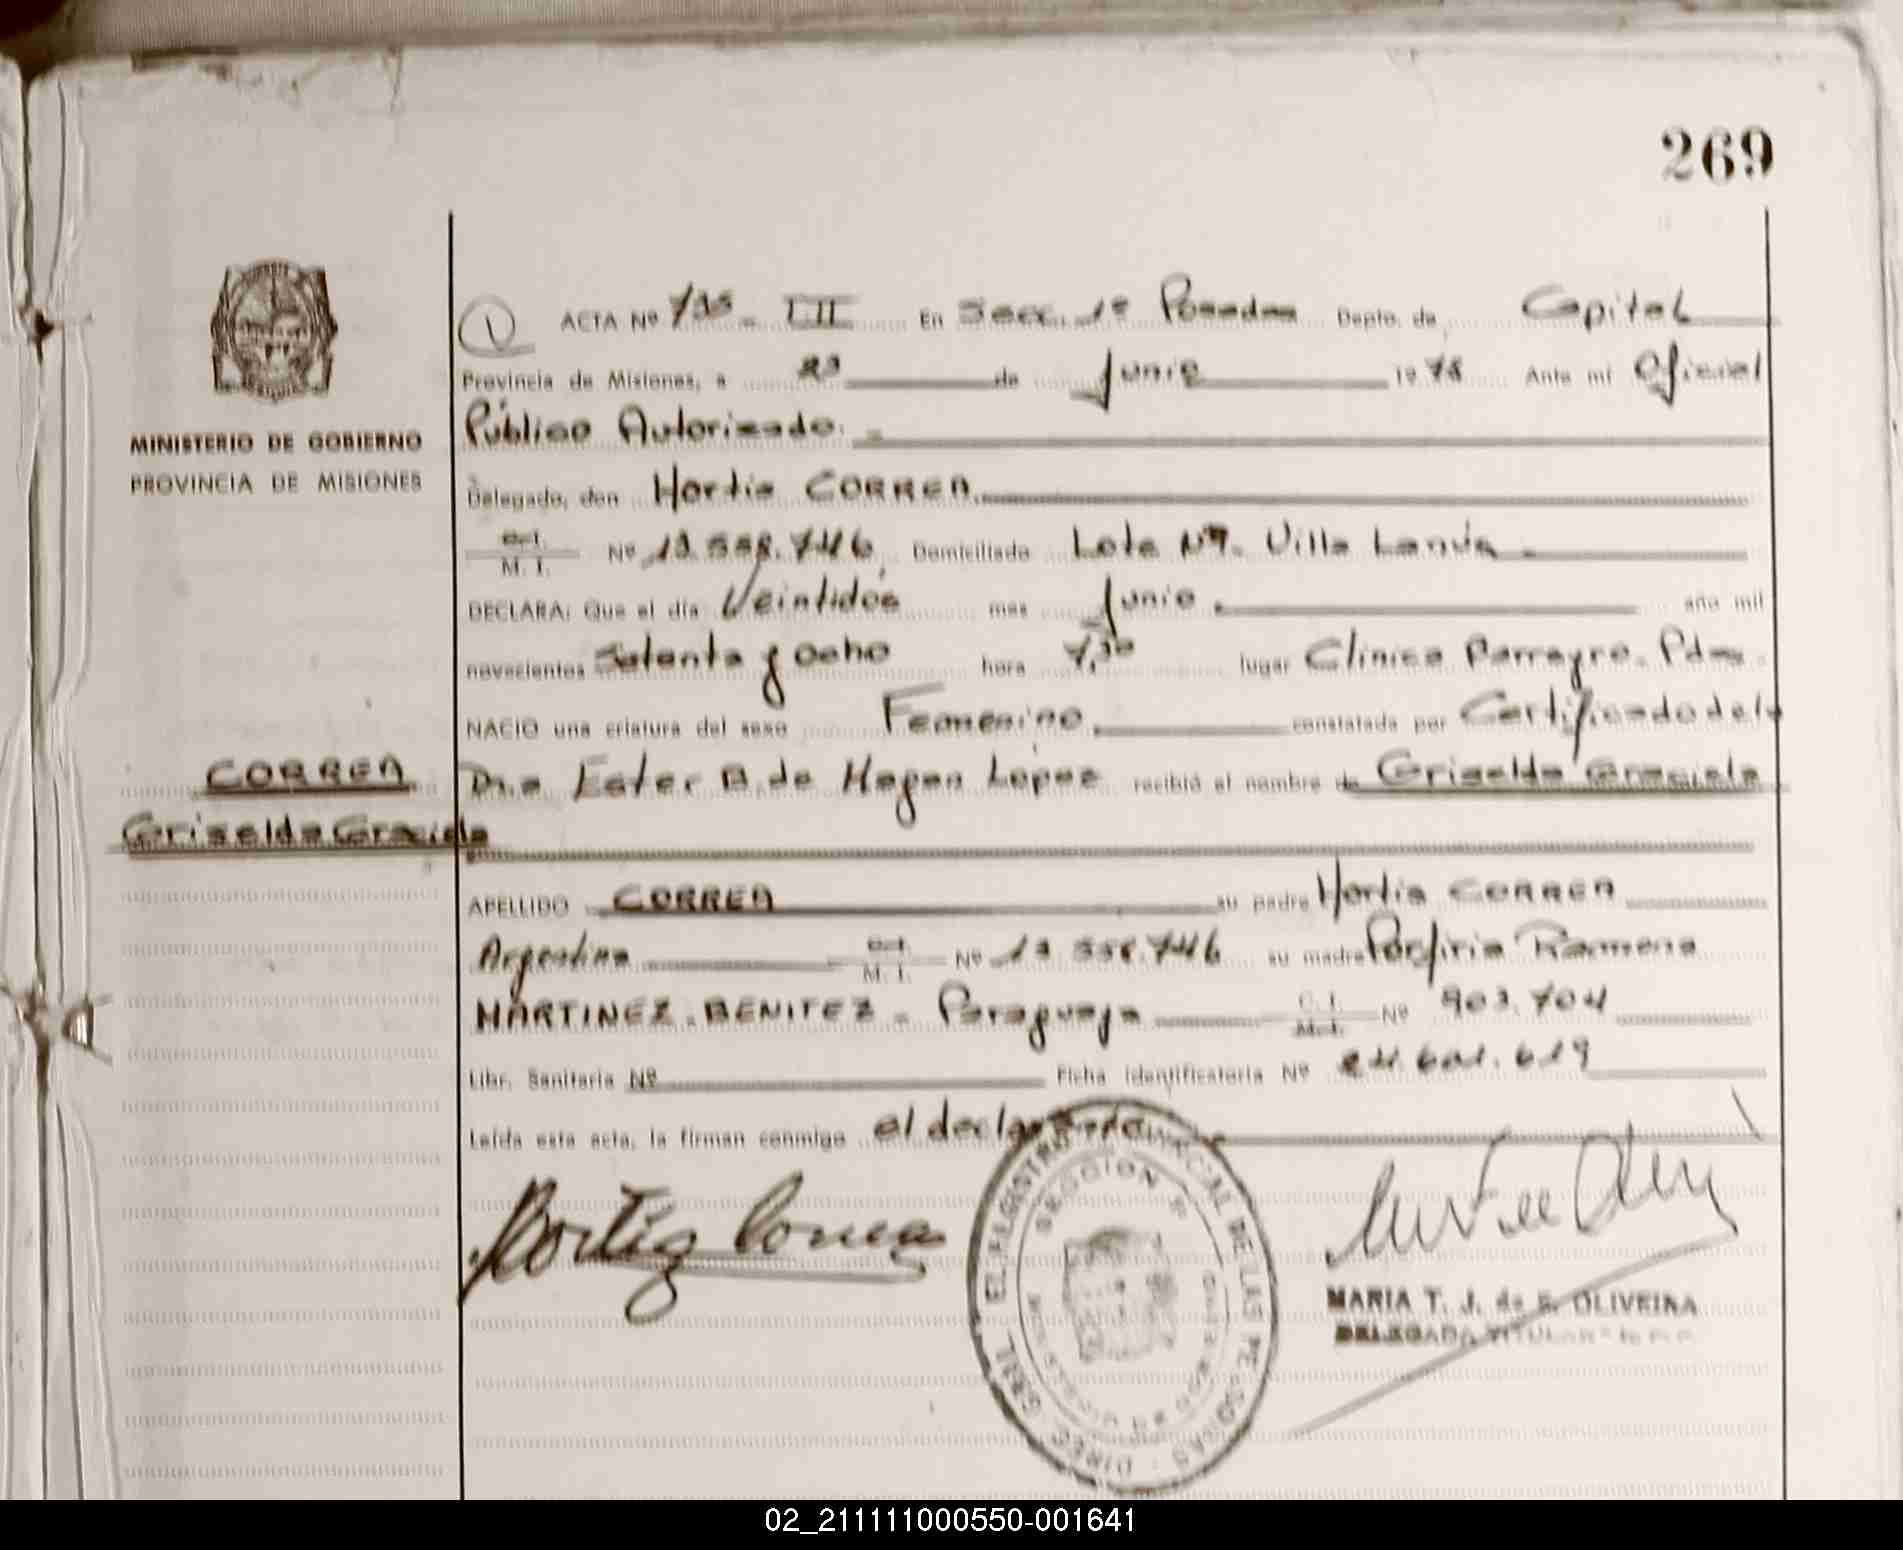 269
ACTA Nº 735 - T II En Secc. 1º Posadas Depto. de Capital
Provincia de Misiones, a 23 de Junio 1978 Ante mí Oficial
Público Autorizado. -
MINISTERIO DE GOBIERNO
PROVINCIA DE MISIONES
Delegado, don Hortis CORREA
C.I. M. I. Nº 13.558.746 Domiciliado Lote Nº. Villa Lanús -
DECLARA: Que el día Veintidós mes Junio año mil
novecientos Setenta y Ocho hora 7,30 lugar Clínica Parrayro. Pdas.
NACIO una criatura del sexo Femenino constatada por Certificado de la
CORREA
Griselda Graciela
Dra Ester B. de Hagen Lopez recibió el nombre de Griselda Graciela
APELLIDO CORREA su padre Hortis CORREA
Argentino C.I. M. I. Nº 13.558.746 su madre Porfiria Ramona
MARTINEZ - BENITEZ - Paraguaya C. I. M. I. Nº 903.704
Libr. Sanitaria Nº Ficha identificatoria Nº 26.601.619
Leída esta acta, la firman conmigo el declarante
Hortis Correa
DIREC. GRAL. EL REGISTRO PROVINCIAL DE LAS PERSONAS
SECCION 1ª
MARIA T. J. de S. OLIVEIRA
DELEGADA TITULAR
02_211111000550-001641